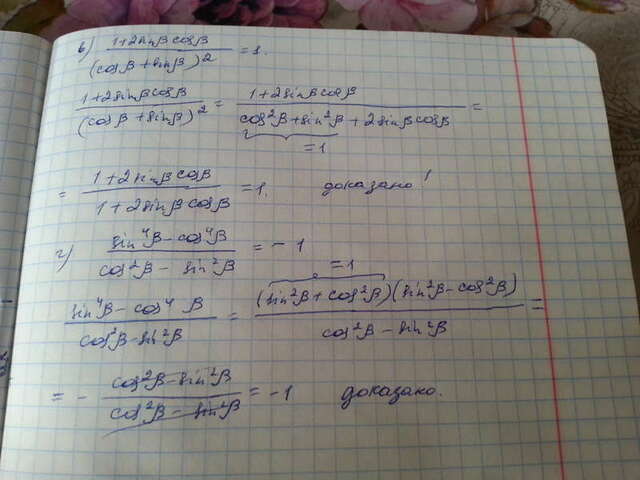 в) (1+2sinβ cosβ)/(cosβ+sinβ)² = 1.
(1+2sinβcosβ)/(cosβ+sinβ)² = (1+2sinβcosβ)/(cos²β+sin²β+2sinβcosβ) =
=1
= (1+2sinβcosβ)/(1+2sinβcosβ) = 1. доказано!
г) (sin⁴β-cos⁴β)/(cos²β-sin²β) = -1
=1
(sin⁴β-cos⁴β)/(cos²β-sin²β) = (sin²β+cos²β)(sin²β-cos²β)/(cos²β-sin²β) =
= -(cos²β-sin²β)/(cos²β-sin²β) = -1 доказано.